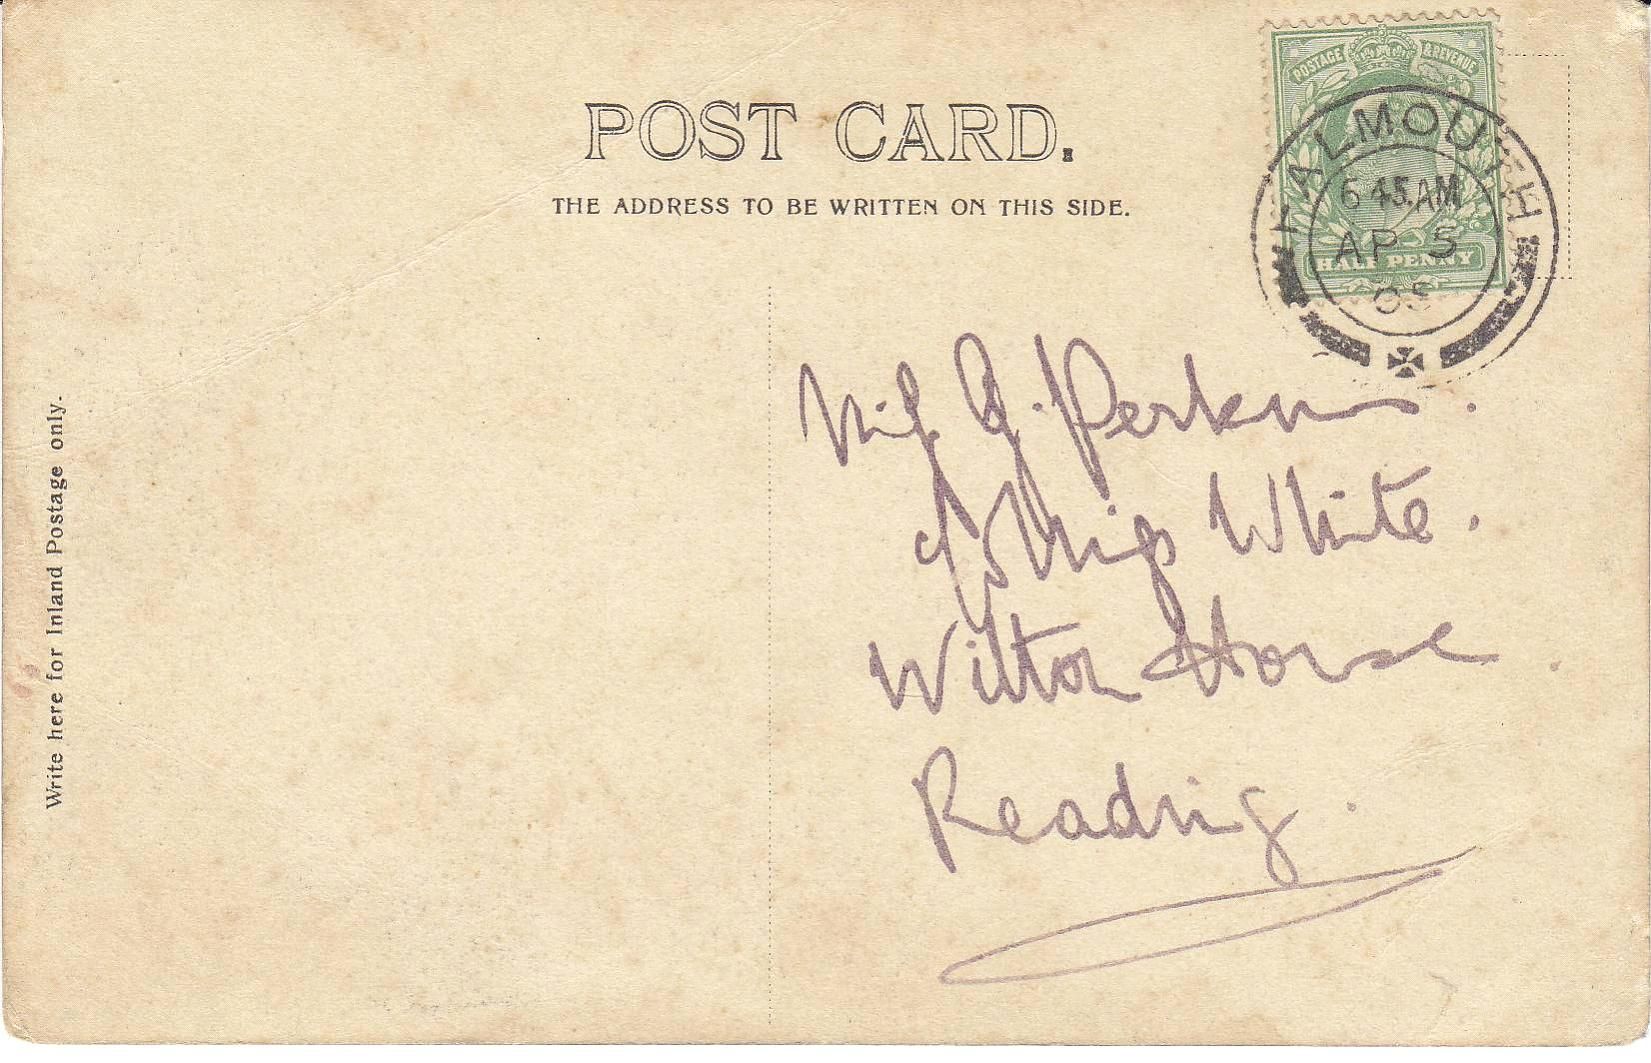 POST CARD.
THE ADDRESS TO BE WRITTEN ON THIS SIDE.
POSTAGE & REVENUE
HALF PENNY
FALMOUTH
6 45 AM
AP 5
05
Write here for Inland Postage only.
Miss G. Perkins.
c/o Miss White.
Wilton House
Reading.